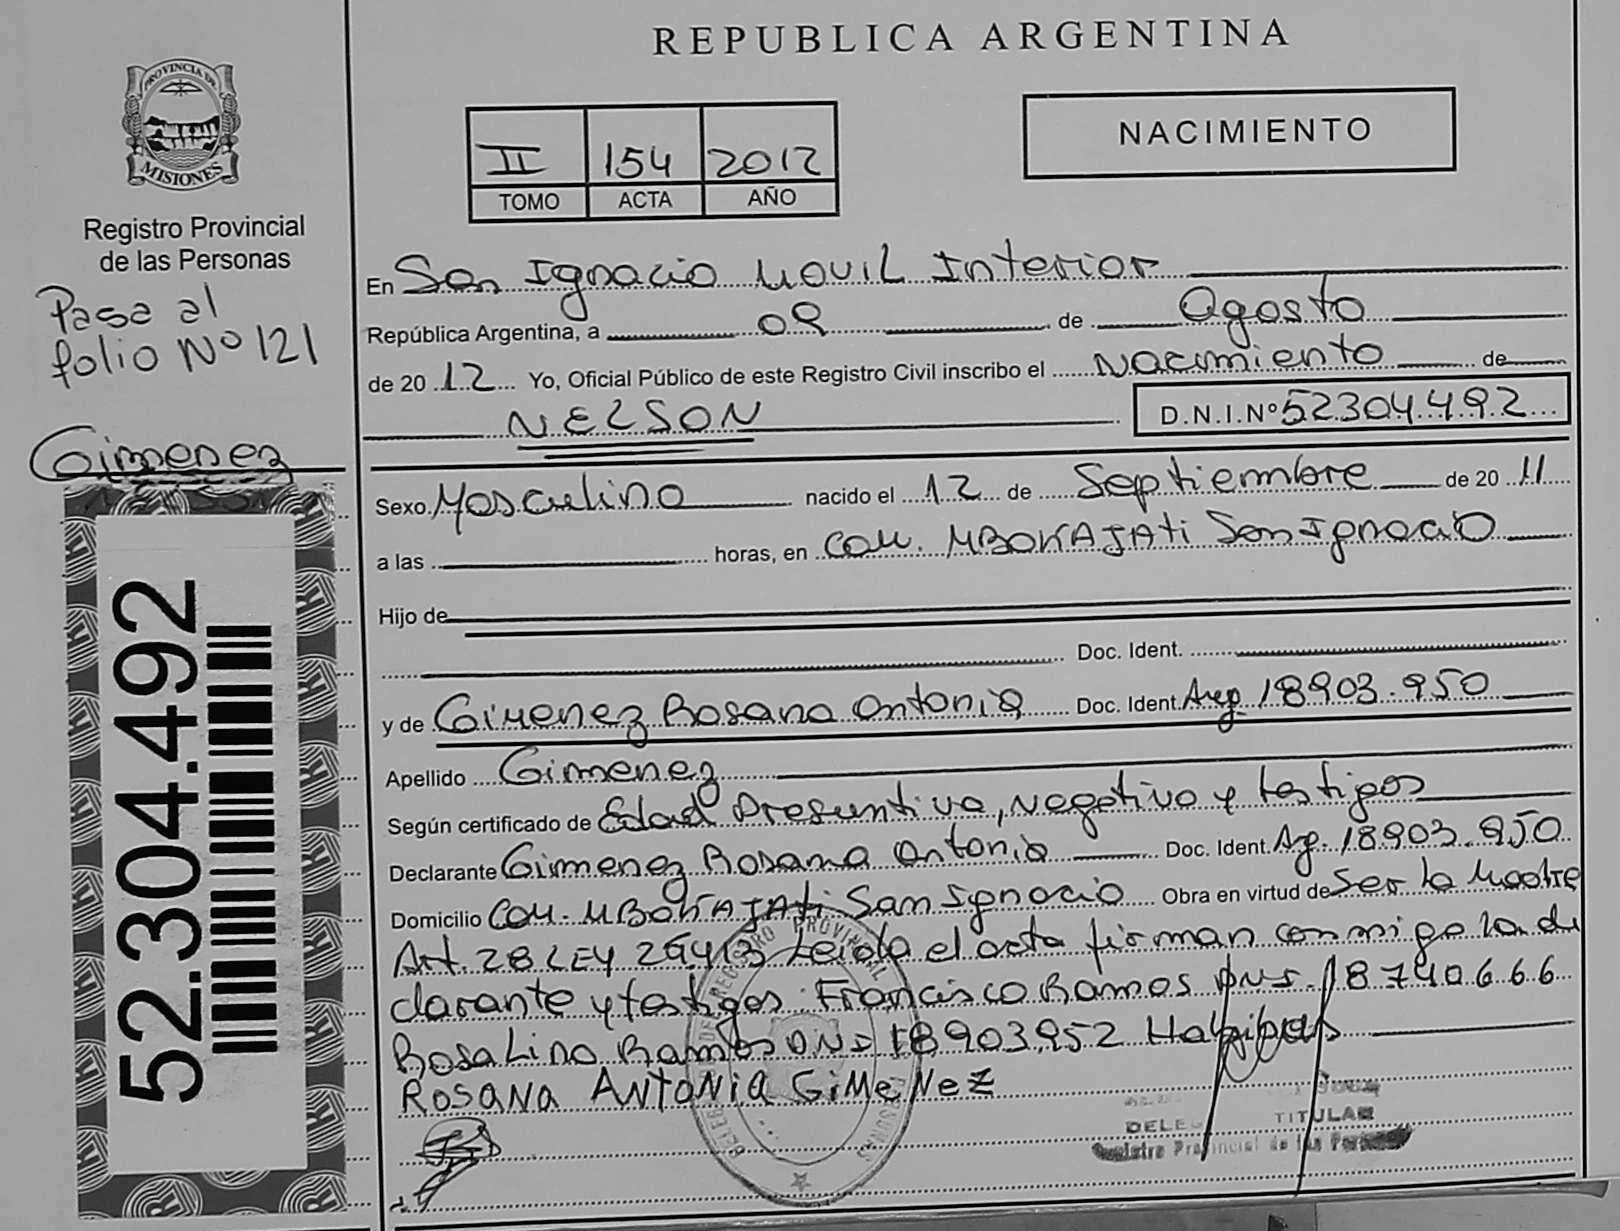 REPUBLICA ARGENTINA
PROVINCIA DE
MISIONES
Registro Provincial
de las Personas
Pasa al
folio Nº 121
Gimenez
52.304.492
II 154 2012
TOMO ACTA AÑO
NACIMIENTO
En San Ignacio Movil Interior
República Argentina, a 08 de Agosto
de 20 12 Yo, Oficial Público de este Registro Civil inscribo el Nacimiento de
NELSON D.N.I.Nº 52304492
Sexo Masculino nacido el 12 de Septiembre de 20 11
a las horas, en Com. MBOKAJATi San Ignacio
Hijo de
Doc. Ident.
y de Gimenez Rosana Antonia Doc. Ident. Arg. 18903.950
Apellido Gimenez
Según certificado de Edad Presuntiva, Negativo y testigos
Declarante Gimenez Rosana Antonia Doc. Ident. Arg. 18903.950
Domicilio Com. MBOKAJATi San Ignacio Obra en virtud de Ser la Madre
Art. 28 LEY 26413 Leida el acta firman conmigo la de
clarante y testigos Francisco Ramos DNI 18740666
Rosalino Ramos DNI 18903952 Habiles
ROSANA ANTONIA GiMeNeZ
TITULAR
Registro Provincial de las Personas